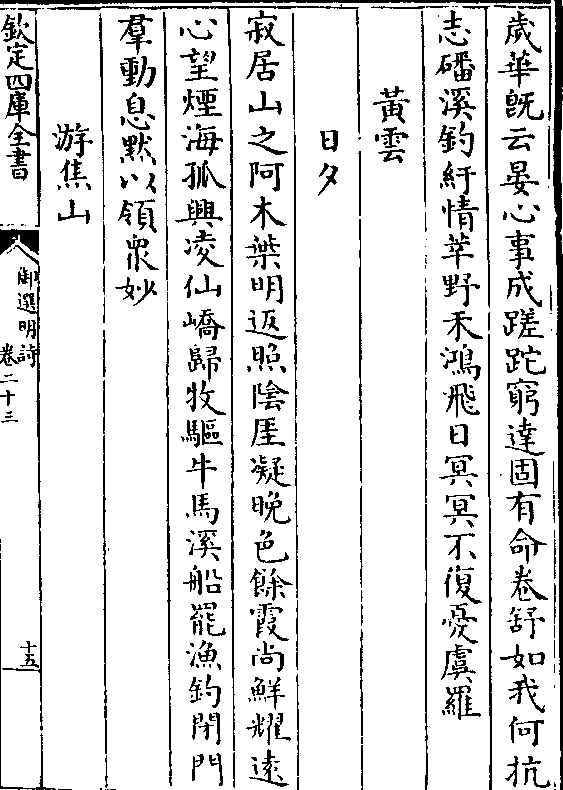 歲華旣云晏心事成蹉跎窮達固有命卷舒如我何抗
志磻溪釣紆情莘野禾鴻飛日冥冥不復憂虞羅
黃雲
日夕
寂居山之阿木葉明返照陰厓凝晚色餘霞尚鮮耀遠
心望煙海孤興凌仙嶠歸牧驅牛馬溪船罷漁釣閉門
羣動息默以領眾妙
游焦山
欽定四庫全書
御選明詩
卷二十三
十五